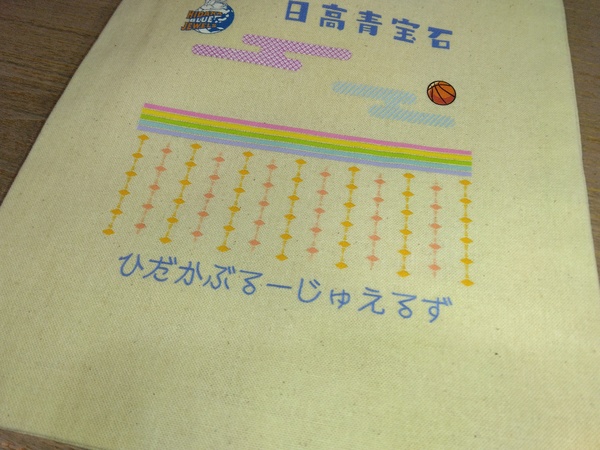 HIDAKA
BLUE
JEWELS
日高青宝石
ひだかぶるーじゅえるず